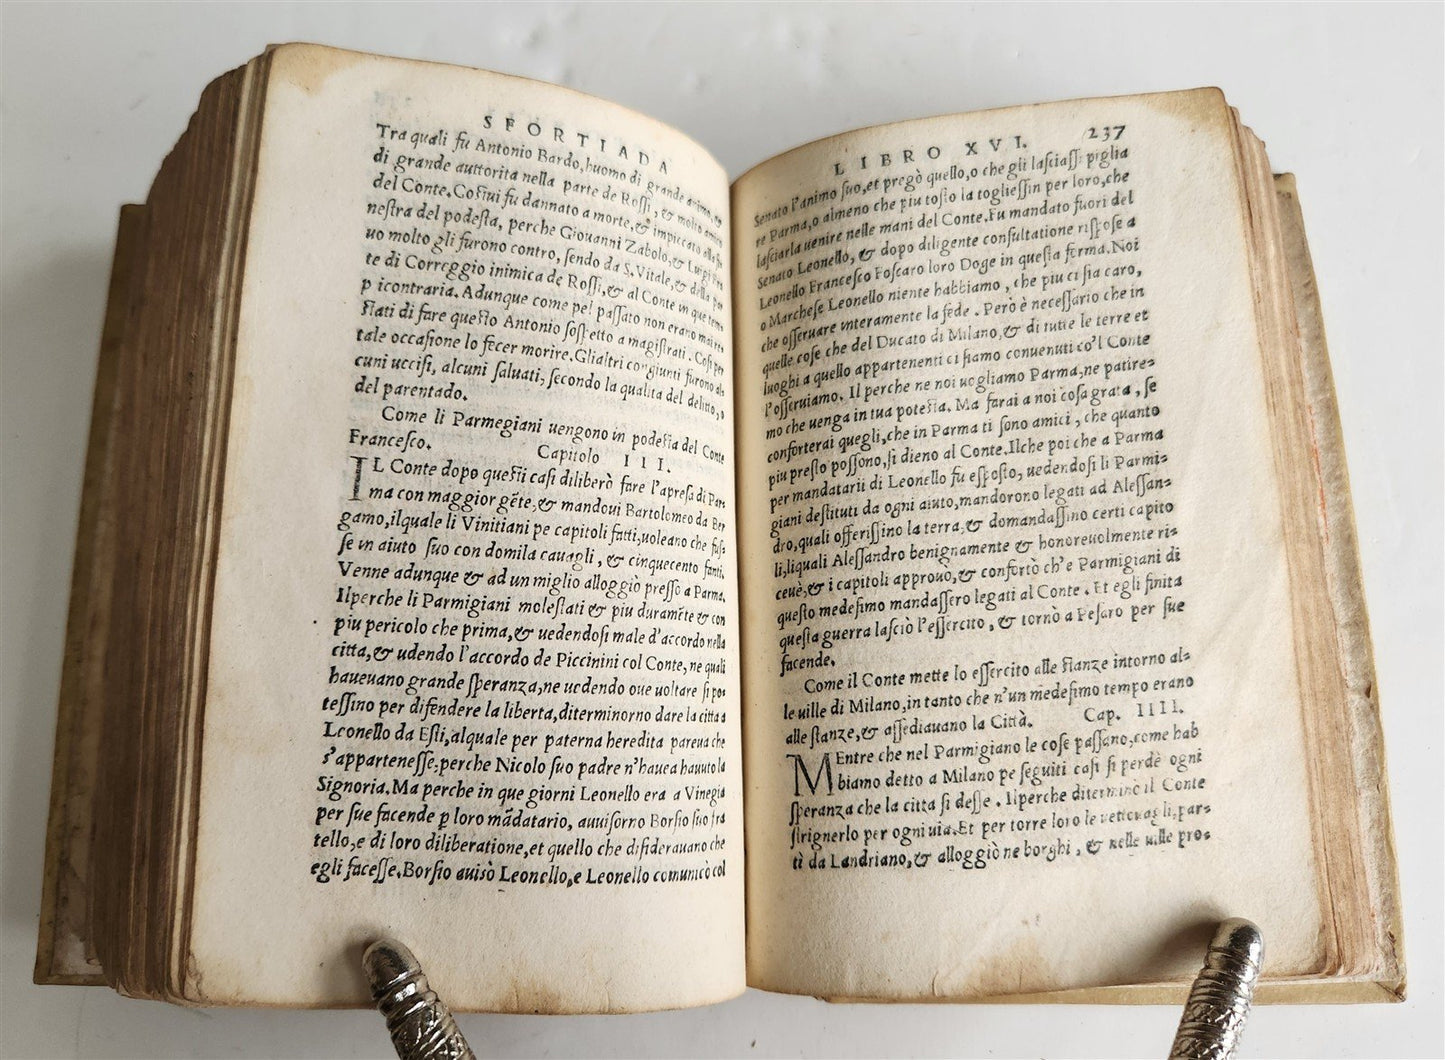 SFORTIADA
Tra quali fu Antonio Bardo, huomo di grande animo, et
di grande auttorita nella parte de Rossi, & molto amico
del Conte. Costui fu dannato a morte, & impiccato alla fi
nestra del podesta, perche Giouanni Zabolo, & Luigi
uo molto gli furono contro, sendo da S. Vitale, & della par
te di Correggio inimica de Rossi, & al Conte in que tempi
p icontraria. Adunque come pel passato non erano mai re=
stati di fare questo Antonio sospetto a magistrati. Cosi per
tale occasione lo fecer morire. Glialtri congiunti furono al=
cuni uccisi, alcuni saluati, secondo la qualita del delitto, o
del parentado.
Come li Parmegiani uengono in podesta del Conte
Francesco. Capitolo III.
IL Conte dopo questi casi diliberò fare l'apresa di Par=
ma con maggior gẽte, & mandoui Bartolomeo da Ber
gamo, ilquale li Vinitiani pe capitoli fatti, uoleano che fus=
se in aiuto suo con domila cauagli, & cinquecento fanti.
Venne adunque & ad un miglio alloggiò presso a Parma.
Ilperche li Parmigiani molestati & piu duramẽte & con
piu pericolo che prima, & uedendosi male d'accordo nella
citta, & udendo l'accordo de Piccinini col Conte, ne quali
haueuano grande speranza, ne uedendo oue uoltare si po=
tessino per difendere la liberta, diterminorno dare la citta a
Leonello da Esti, alquale per paterna heredita pareua che
s'appartenesse, perche Nicolo suo padre n'hauea hauuto la
Signoria. Ma perche in que giorni Leonello era a Vinegia
per sue facende ꝑ loro mãdatario, auuisorno Borsio suo fra
tello, e di loro diliberatione, et quello che disiderauano che
egli facesse. Borsio auisò Leonello, e Leonello comunicò col
LIBRO XVI. 237
Senato l'animo suo, et pregò quello, o che gli lasciassi piglia
re Parma, o almeno che piu tosto la togliessin per loro, che
lasciarla uenire nelle mani del Conte. Fu mandato fuori del
Senato Leonello, & dopo diligente consultatione rispose a
Leonello Francesco Foscaro loro Doge in questa forma. Noi
o Marchese Leonello niente habbiamo, che piu ci sia caro,
che osseruare interamente la fede. Però è necessario che in
quelle cose che del Ducato di Milano, & di tutte le terre et
luoghi a quello appartenenti ci siamo conuenuti co'l Conte
l'osseruiamo. Il perche ne noi uogliamo Parma, ne patire=
mo che uenga in tua potesta. Ma farai a noi cosa grata, se
conforterai quegli, che in Parma ti sono amici, che quanto
piu presto possono, si dieno al Conte. Ilche poi che a Parma
per mandatarii di Leonello fu esposto, uedendosi li Parmi=
giani destituti da ogni aiuto, mandorono legati ad Alessan=
dro, quali offerissino la terra, & domandassino certi capito
li, liquali Alessandro benignamente & honoreuolmente ri=
ceuè, & i capitoli approuò, & confortò ch'e Parmigiani di
questo medesimo mandassero legati al Conte. Et egli finita
questa guerra lasciò l'essercito, & tornò a Pesaro per sue
facende.
Come il Conte mette lo essercito alle stanze intorno al=
le uille di Milano, in tanto che n'un medesimo tempo erano
alle stanze, & assediauano la Città. Cap. IIII.
MEntre che nel Parmigiano le cose passano, come hab
biamo detto a Milano pe seguiti casi si perdè ogni
speranza che la citta si desse. Ilperche diterminò il Conte
strignerlo per ogni uia. Et per torre loro le uettouagli, par=
tì da Landriano, & alloggiò ne borghi, & nelle uille pro=